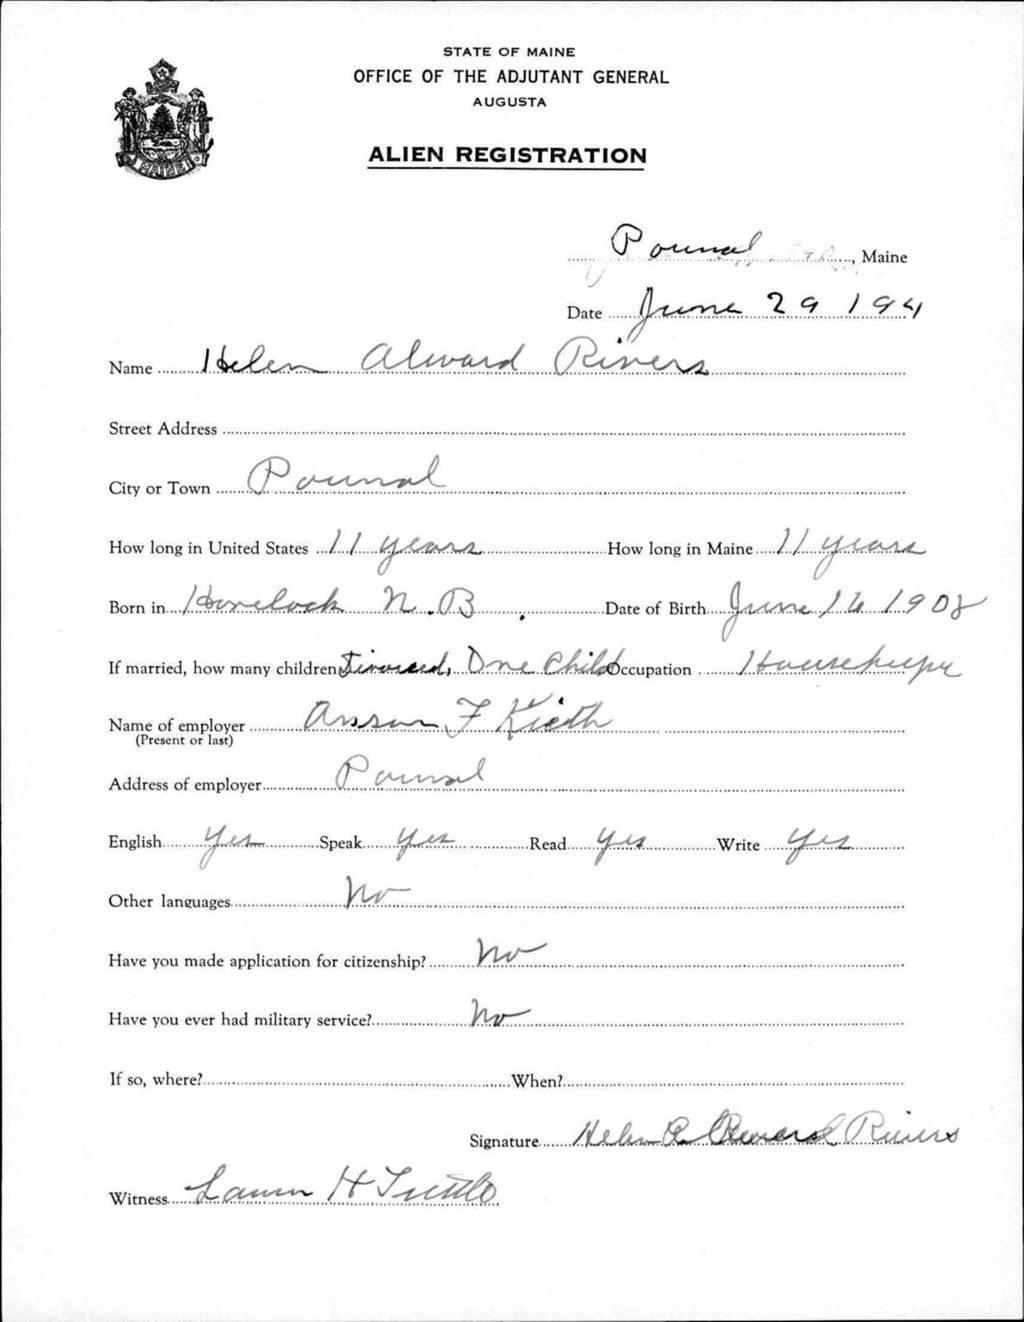 STATE OF MAINE
OFFICE OF THE ADJUTANT GENERAL
AUGUSTA
ALIEN REGISTRATION
Pownal, Maine
Date June 29 194
Name Helen Alward Rivers
Street Address
City or Town Pownal
How long in United States 11 years How long in Maine 11 years
Born in Havelock N.B. Date of Birth June 16 1908
If married, how many children Divorced, One Child Occupation Housekeeper
Name of employer F Kieth
(Present or last)
Address of employer Pownal
English Yes Speak Yes Read Yes Write Yes
Other languages No
Have you made application for citizenship? No
Have you ever had military service? No
If so, where? When?
Signature Helen Alward Rivers
Witness H Tuttle